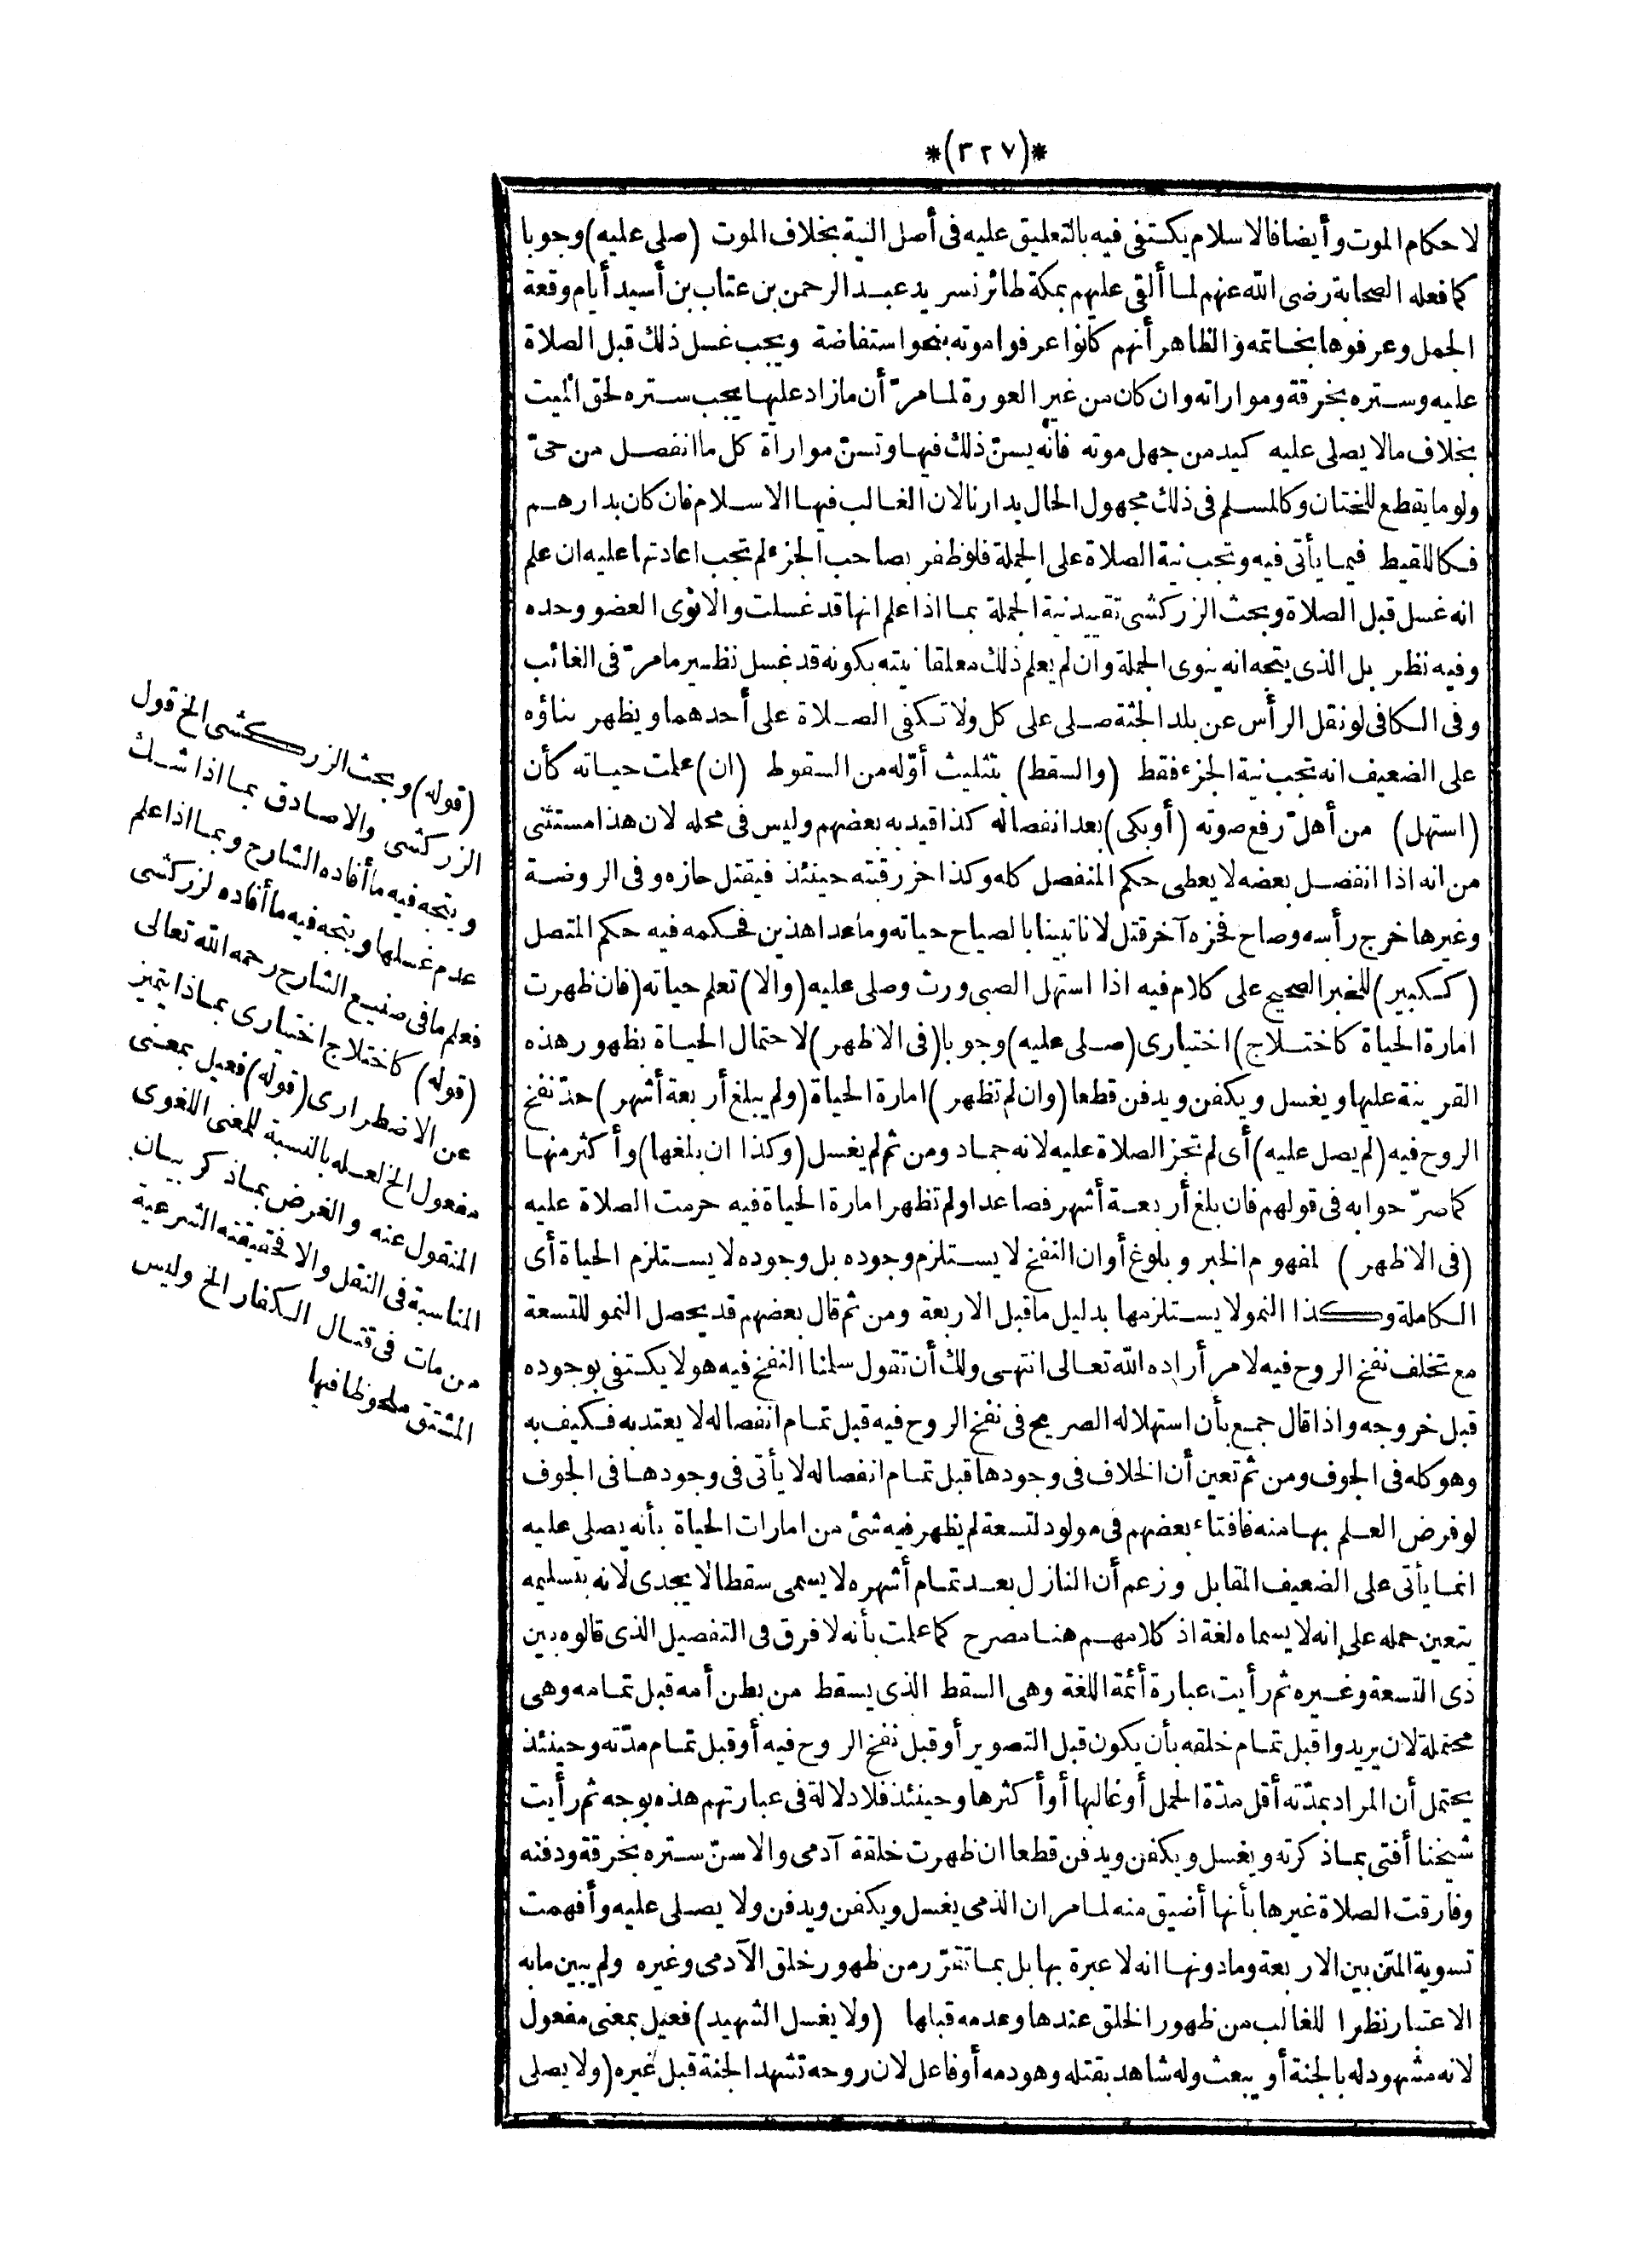 *(٣٢٧)*
لاحكام الموت وأيضا فالاسلام يكتفى فيه بالتعليق عليه فى أصل النية بخلاف الموت (صلى عليه) وجوبا
كما فعله الصحابة رضى الله عنهم لما ألقى عليهم بمكة طائر نسر يد عبد الرحمن بن عتاب بن أسيد أيام وقعة
الجمل وعرفوها بخاتمه والظاهر أنهم كانوا عرفوا موته بنحو استفاضة ويجب غسل ذلك قبل الصلاة
عليه وستره بخرقة ومواراته وان كان من غير العورة لما مرّ أن ما زاد عليها يجب ستره لحق الميت
بخلاف ما لا يصلى عليه كيد من جهل موته فانه يسنّ ذلك فيها وتسنّ مواراة كل ما انفصل من حىّ
ولو ما يقطع للختان وكالمسلم فى ذلك مجهول الحال بدارنا لان الغالب فيها الاسلام فان كان بدارهم
فكاللقيط فيما يأتى فيه وتجب نية الصلاة على الجملة فلو ظفر بصاحب الجزء لم تجب اعادتها عليه ان علم
انه غسل قبل الصلاة وبحث الزركشى تقييد نية الجملة بما اذا علم انها قد غسلت والا نوى العضو وحده
وفيه نظر بل الذى يتجه انه ينوى الجملة وان لم يعلم ذلك معلقا نيته بكونه قد غسل نظير ما مرّ فى الغائب
وفى الكافى لو نقل الرأس عن بلد الجثة صلى على كل ولا تكفى الصلاة على أحدهما ويظهر بناؤه
على الضعيف انه تجب نية الجزء فقط (والسقط) بتثليث أوّله من السقوط (ان) علمت حياته كأن
(استهل) من أهلّ رفع صوته (أو بكى) بعد انفصاله كذا قيد به بعضهم وليس فى محله لان هذا مستثنى
من انه اذا انفصل بعضه لا يعطى حكم المنفصل كله وكذا حز رقبته حينئذ فيقتل حازه وفى الروضة
وغيرها خرج رأسه وصاح فحزه آخر قتل لانا تبينا بالصياح حياته وما عدا هذين فحكمه فيه حكم المتصل
(ككبير) للخبر الصحيح على كلام فيه اذا استهل الصبى ورث وصلى عليه (والا) تعلم حياته (فان ظهرت
امارة الحياة كاختلاج) اختيارى (صلى عليه) وجوبا (فى الاظهر) لاحتمال الحياة بظهور هذه
القرينة عليها ويغسل ويكفن ويدفن قطعا (وان لم تظهر) امارة الحياة (ولم يبلغ أربعة أشهر) حدّ نفخ
الروح فيه (لم يصل عليه) أى لم تجز الصلاة عليه لانه جماد ومن ثم لم يغسل (وكذا ان بلغها) وأكثر منها
كما صرّحوا به فى قولهم فان بلغ أربعة أشهر فصاعدا ولم تظهر امارة الحياة فيه حرمت الصلاة عليه
(فى الاظهر) لمفهوم الخبر وبلوغ أوان النفخ لا يستلزم وجوده بل وجوده لا يستلزم الحياة أى
الكاملة وكذا النمو لا يستلزمها بدليل ما قبل الاربعة ومن ثم قال بعضهم قد يحصل النمو للتسعة
مع تخلف نفخ الروح فيه لامر أراده الله تعالى انتهى ولك أن تقول سلمنا النفخ فيه هو لا يكتفى بوجوده
قبل خروجه واذا قال جمع بأن استهلاله الصريح فى نفخ الروح فيه قبل تمام انفصاله لا يعتد به فكيف به
وهو كله فى الجوف ومن ثم تعين أن الخلاف فى وجودها قبل تمام انفصاله لا يأتى فى وجودها فى الجوف
لو فرض العلم بها منه فافتاء بعضهم فى مولود لتسعة لم يظهر فيه شئ من امارات الحياة بأنه يصلى عليه
انما يأتى على الضعيف المقابل وزعم أن النازل بعد تمام أشهره لا يسمى سقطا لا يجدى لانه بتسليمه
يتعين حمله على انه لا يسماه لغة اذ كلامهم هنا مصرح كما علمت بأنه لا فرق فى التفصيل الذى قالوه بين
ذى التسعة وغيره ثم رأيت عبارة أئمة اللغة وهى السقط الذى يسقط من بطن أمه قبل تمامه وهى
محتملة لان يريدوا قبل تمام خلقه بأن يكون قبل التصوير أو قبل نفخ الروح فيه أو قبل تمام مدّته وحينئذ
يحتمل أن المراد بمدّته أقل مدّة الحمل أو غالبها أو أكثرها وحينئذ فلا دلالة فى عبارتهم هذه بوجه ثم رأيت
شيخنا أفتى بما ذكرته ويغسل ويكفن ويدفن قطعا ان ظهرت خلقة آدمى والا سنّ ستره بخرقة ودفنه
وفارقت الصلاة غيرها بأنها أضيق منه لما مر ان الذمى يغسل ويكفن ويدفن ولا يصلى عليه وأفهمت
تسوية المتن بين الاربعة وما دونها انه لا عبرة بها بل بما تقرّر من ظهور خلق الآدمى وغيره ولم يبين ما به
الاعتبار نظرا للغالب من ظهور الخلق عندها وعدمه قبلها (ولا يغسل الشهيد) فعيل بمعنى مفعول
لانه مشهود له بالجنة أو يبعث وله شاهد بقتله وهو دمه أو فاعل لان روحه تشهد الجنة قبل غيره (ولا يصلى
(قوله) وبحث الزركشى الخ قول
الزركشى والا صادق بما اذا شك
ويتجه فيه ما أفاده الشارح وبما اذا علم
عدم غسلها ويتجه فيه ما أفاده لزركشى
فعلم ما فى صنيع الشارح رحمه الله تعالى
(قوله) كاختلاج اختيارى بماذا يتميز
عن الاضطرارى (قوله) فعيل بمعنى
مفعول الخ لعله بالنسبة للمعنى اللغوى
المنقول عنه والغرض بما ذكر بيان
المناسبة فى النقل والا فحقيقته الشرعية
من مات فى قتال الكفار الخ وليس
المشتق ملحوظا فيها